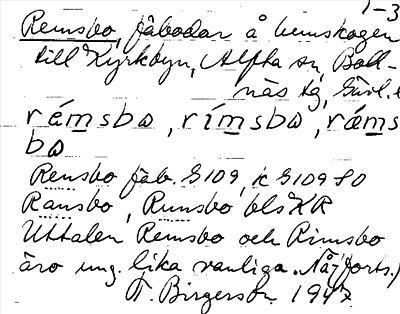 1-3
Remsbo, fäbodar å hemskogen
till Kyrkbyn, Alfta sn, Boll-
näs tg, Gävl. l
rémsbɷ, rímsbɷ, ráms
bɷ
Rensbo fäb. G109, k G109 SO
Ransbo, Runsbo bls KR
Uttalen Remsbo och Rimsbo
äro ung. lika vanliga. Nå (forts.)
T. Birgersson 1947